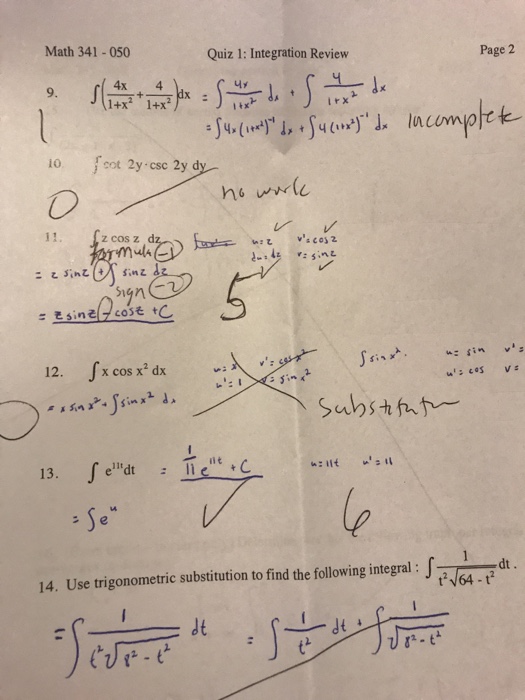 Math 341 - 050 Quiz 1: Integration Review Page 2
9. ∫(4x/1+x² + 4/1+x²)dx = ∫ 4x/1+x² dx + ∫ 4/1+x² dx
= ∫4x(1+x²)⁻¹ dx + ∫4(1+x²)⁻¹ dx incomplete
1
10. ∫cot 2y·csc 2y dy
no work
0
11. ∫z cos z dz u=z v'=cos z
formula -1 du=dz v=sin z
= z sin z + ∫ sin z dz
sign -2 5
= z sin z - cos z + C
12. ∫x cos x² dx u=x v'=cos x² ∫sin x². u=sin v'=
u'=1 v=sin x² u'=cos v=
= x sin x² - ∫sin x² dx substitution
0
13. ∫e¹¹ᵗdt = 1/11 e¹¹ᵗ + C u=11t u'=11
= ∫eᵘ 6
14. Use trigonometric substitution to find the following integral : ∫ 1/t²√64 - t² dt .
= ∫ 1/t²√8² - t² dt = ∫ 1/t² dt + ∫ 1/√8² - t²